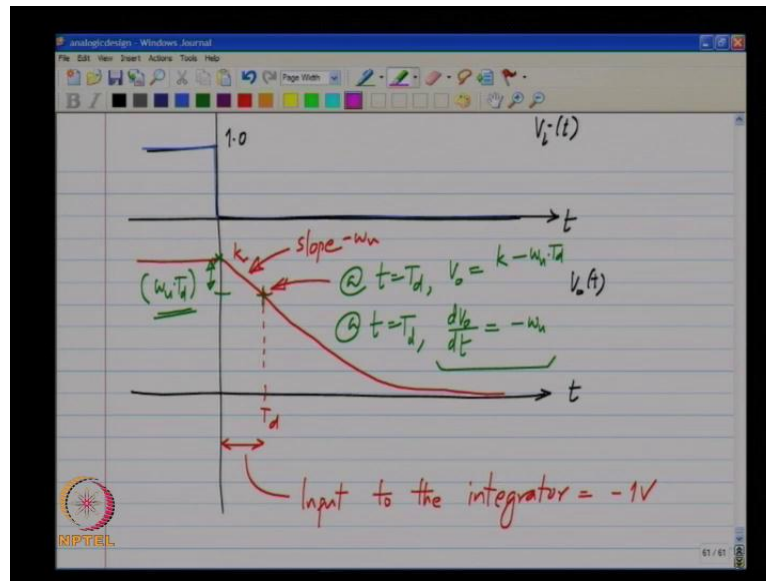 analogicdesign - Windows Journal
File Edit View Insert Actions Tools Help
Page Width
B I
1.0
Vi(t)
t
k
slope -ωu
(ωu·Td)
@ t=Td, Vo = k - ωu·Td
Vo(t)
@ t=Td, dVo/dt = -ωu
t
Td
Input to the integrator = -1V
NPTEL
61 / 61